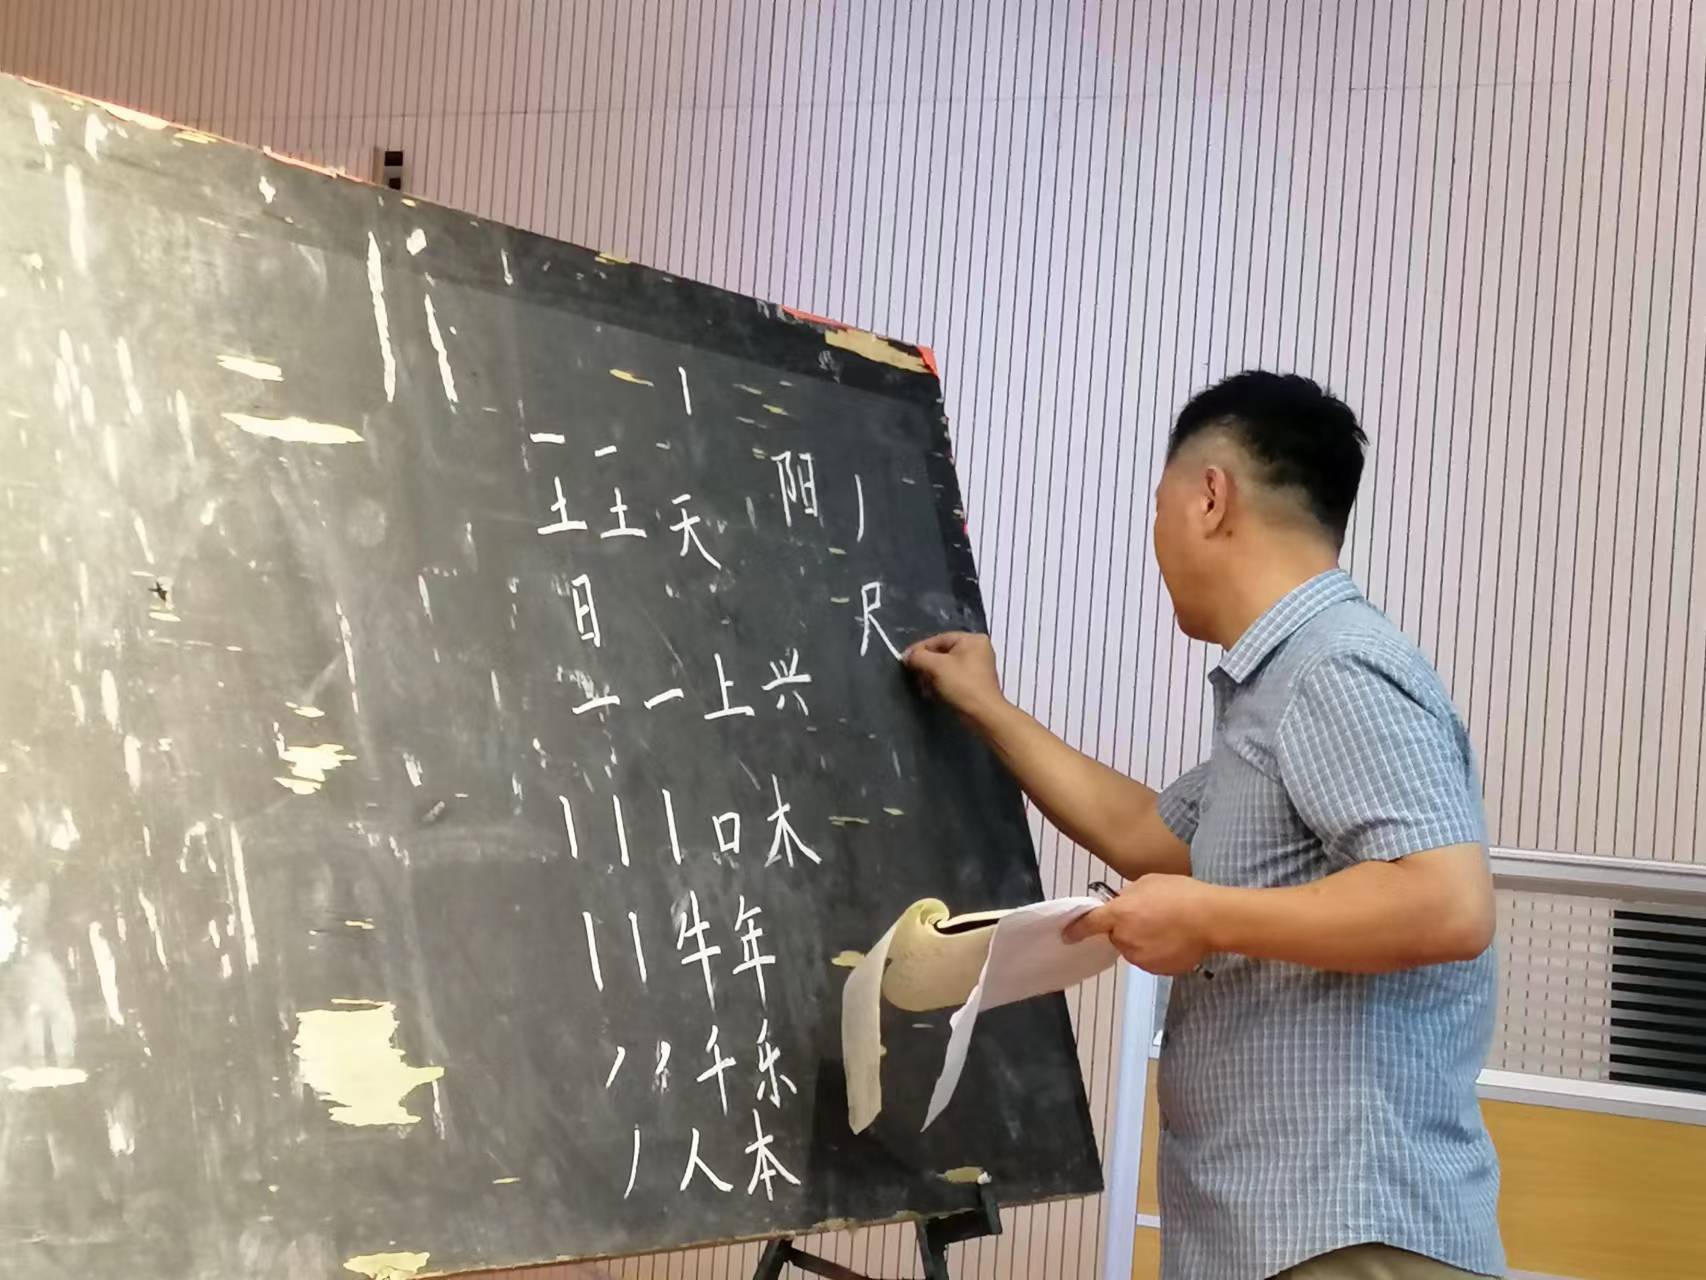 一 一 丨
土 土 天 阳 丿
日 尺
一 一 上 兴
丨 丨 丨 口 木
丨 丨 牛 年
丿 丿 千 乐
丿 人 本